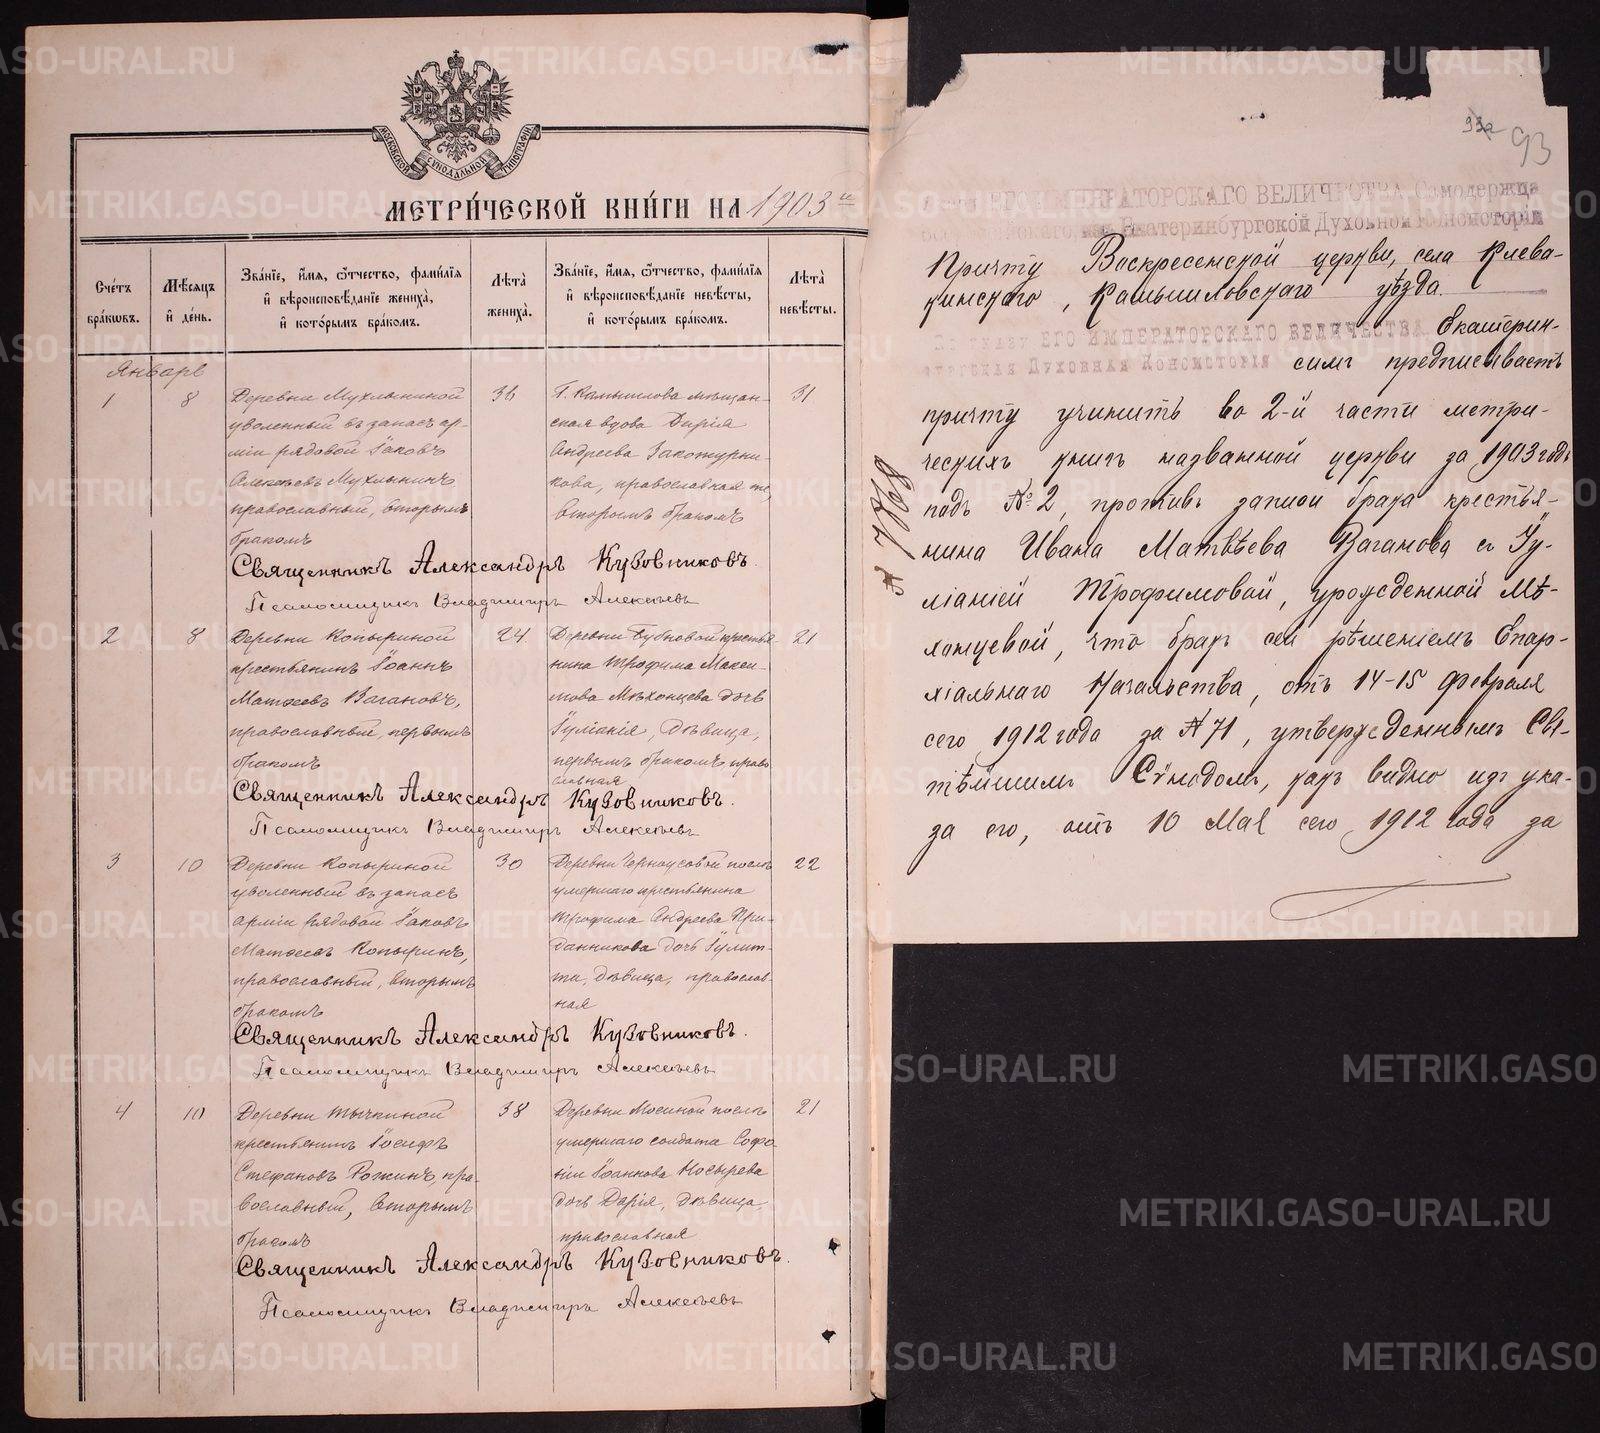 МОСКОВСКОЙ СѴНОДАЛЬНОЙ ТИПОГРАФІИ
МЕТРИ́ЧЕСКОЙ КНИ́ГИ НА 1903 й
Сче́тъ бра́кωвъ.
Мѣ́сяцъ и҆ де́нь.
Зва́нїе, и҆́мя, ѻ҆́тчество, фамилїя и҆ вѣроисповѣ́данїе жениха̀, и҆ кото́рымъ бра́комъ.
Лѣта̀ жениха̀.
Зва́нїе, и҆́мя, ѻ҆́тчество, фамилїя и҆ вѣроисповѣ́данїе невѣ́сты, и҆ кото́рымъ бра́комъ.
Лѣта̀ невѣ́сты.
Январь
1
8
Деревни Мухлыниной
уволенный въ запасъ ар-
міи рядовой Іаковъ
Алексѣевъ Мухлынинъ
православный, вторымъ
бракомъ
36
Г. Камышлова мѣщан-
ская вдова Дарія
Андреева Закожурни-
кова, православная
вторымъ бракомъ
31
Священникъ Александръ Кузовниковъ.
Псаломщикъ Владимиръ Алексѣевъ
2
8
Деревни Копыриной
крестьянинъ Іоаннъ
Матѳеевъ Вагановъ,
православный, первымъ
бракомъ
24
Деревни Бубновой крестья-
нина Трофима Макси-
мова Мѣхонцева дочь
Іуліанія, дѣвица,
первымъ бракомъ право
славная
21
Священникъ Александръ Кузовниковъ.
Псаломщикъ Владимиръ Алексѣевъ
3
10
Деревни Копыриной
уволенный въ запасъ
арміи рядовой Іаковъ
Матѳеевъ Копыринъ,
православный, вторымъ
бракомъ
30
Деревни Черноусовой послѣ
умершаго крестьянина
Трофима Андреева При-
данникова дочь Іулит-
та, дѣвица, православ-
ная
22
Священникъ Александръ Кузовниковъ.
Псаломщикъ Владимиръ Алексѣевъ
4
10
Деревни Тычкиной
крестьянинъ Іосифъ
Стефановъ Рожинъ, пра-
вославный, вторымъ
бракомъ
38
Деревни Мосиной послѣ
умершаго солдата Софо
ніи Іоаннова Носырева
дочь Дарія, дѣвица,
православная
21
Священникъ Александръ Кузовниковъ.
Псаломщикъ Владимиръ Алексѣевъ
93
ЕГО ИМПЕРАТОРСКАГО ВЕЛИЧЕСТВА Самодержца
Всероссійскаго, изъ Екатеринбургской Духовной Консисторіи
Причту Воскресенской церкви, села Клева-
кинскаго, Камышловскаго уѣзда.
По указу ЕГО ИМПЕРАТОРСКАГО ВЕЛИЧЕСТВА Екатерин-
бургская Духовная Консисторія симъ предписываетъ
причту учинить во 2-й части метри-
ческихъ книгъ названной церкви за 1903 годъ
подъ № 2, противъ записи брака крестья-
нина Ивана Матвѣева Ваганова съ Іу-
ліаніей Трофимовой, урожденной Мѣ-
хонцевой, что бракъ сей рѣшеніемъ Епар-
хіальнаго Начальства, отъ 14-15 февраля
сего 1912 года за № 71, утвержденнымъ Свя-
тѣйшимъ Сѵнодомъ, какъ видно изъ ука-
за его, отъ 10 Мая сего 1912 года за
№ 7868
METRIKI.GASO-URAL.RU